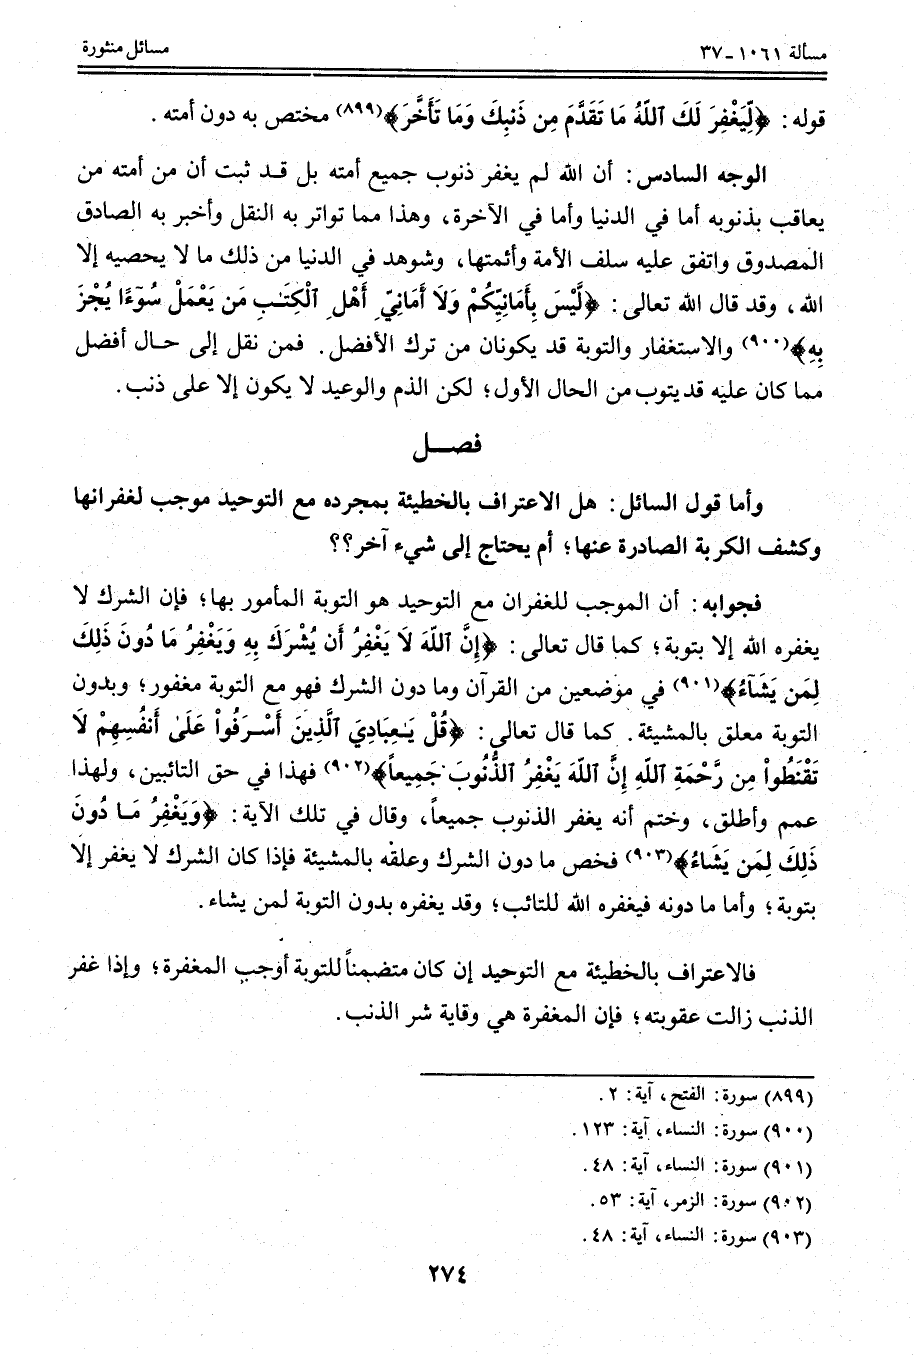 مسألة ١٠٦١ ـ ٣٧
مسائل منثورة
قوله: ﴿لِّيَغْفِرَ لَكَ ٱللَّهُ مَا تَقَدَّمَ مِن ذَنبِكَ وَمَا تَأَخَّرَ﴾(٨٩٩) مختص به دون أمته .
الوجه السادس: أن الله لم يغفر ذنوب جميع أمته بل قد ثبت أن من أمته من
يعاقب بذنوبه أما في الدنيا وأما في الآخرة، وهذا مما تواتر به النقل وأخبر به الصادق
المصدوق واتفق عليه سلف الأمة وأئمتها، وشوهد في الدنيا من ذلك ما لا يحصيه إلا
الله، وقد قال الله تعالى: ﴿لَّيْسَ بِأَمَانِيِّكُمْ وَلَا أَمَانِيِّ أَهْلِ ٱلْكِتَـٰبِ مَن يَعْمَلْ سُوٓءًا يُجْزَ
بِهِ﴾(٩٠٠) والاستغفار والتوبة قد يكونان من ترك الأفضل. فمن نقل إلى حال أفضل
مما كان عليه قد يتوب من الحال الأول؛ لكن الذم والوعيد لا يكون إلا على ذنب.
فصـــل
وأما قول السائل: هل الاعتراف بالخطيئة بمجرده مع التوحيد موجب لغفرانها
وكشف الكربة الصادرة عنها؛ أم يحتاج إلى شيء آخر؟؟
فجوابه: أن الموجب للغفران مع التوحيد هو التوبة المأمور بها؛ فإن الشرك لا
يغفره الله إلا بتوبة؛ كما قال تعالى: ﴿إِنَّ ٱللَّهَ لَا يَغْفِرُ أَن يُشْرَكَ بِهِ وَيَغْفِرُ مَا دُونَ ذَلِكَ
لِمَن يَشَآءُ﴾(٩٠١) في موضعين من القرآن وما دون الشرك فهو مع التوبة مغفور؛ وبدون
التوبة معلق بالمشيئة. كما قال تعالى: ﴿قُلْ يَـٰعِبَادِيَ ٱلَّذِينَ أَسْرَفُوا۟ عَلَىٰ أَنفُسِهِمْ لَا
تَقْنَطُوا۟ مِن رَّحْمَةِ ٱللَّهِ إِنَّ ٱللَّهَ يَغْفِرُ ٱلذُّنُوبَ جَمِيعاً﴾(٩٠٢) فهذا في حق التائبين، ولهذا
عمم وأطلق، وختم أنه يغفر الذنوب جميعاً، وقال في تلك الآية: ﴿وَيَغْفِرُ مَا دُونَ
ذَلِكَ لِمَن يَشَاءُ﴾(٩٠٣) فخص ما دون الشرك وعلقه بالمشيئة فإذا كان الشرك لا يغفر إلا
بتوبة؛ وأما ما دونه فيغفره الله للتائب؛ وقد يغفره بدون التوبة لمن يشاء.
فالاعتراف بالخطيئة مع التوحيد إن كان متضمناً للتوبة أوجب المغفرة؛ وإذا غفر
الذنب زالت عقوبته؛ فإن المغفرة هي وقاية شر الذنب.
(٨٩٩) سورة: الفتح، آية: ٢ .
(٩٠٠) سورة: النساء، آية: ١٢٣.
(٩٠١) سورة: النساء، آية: ٤٨.
(٩٠٢) سورة: الزمر، آية: ٥٣.
(٩٠٣) سورة: النساء، آية: ٤٨.
٢٧٤